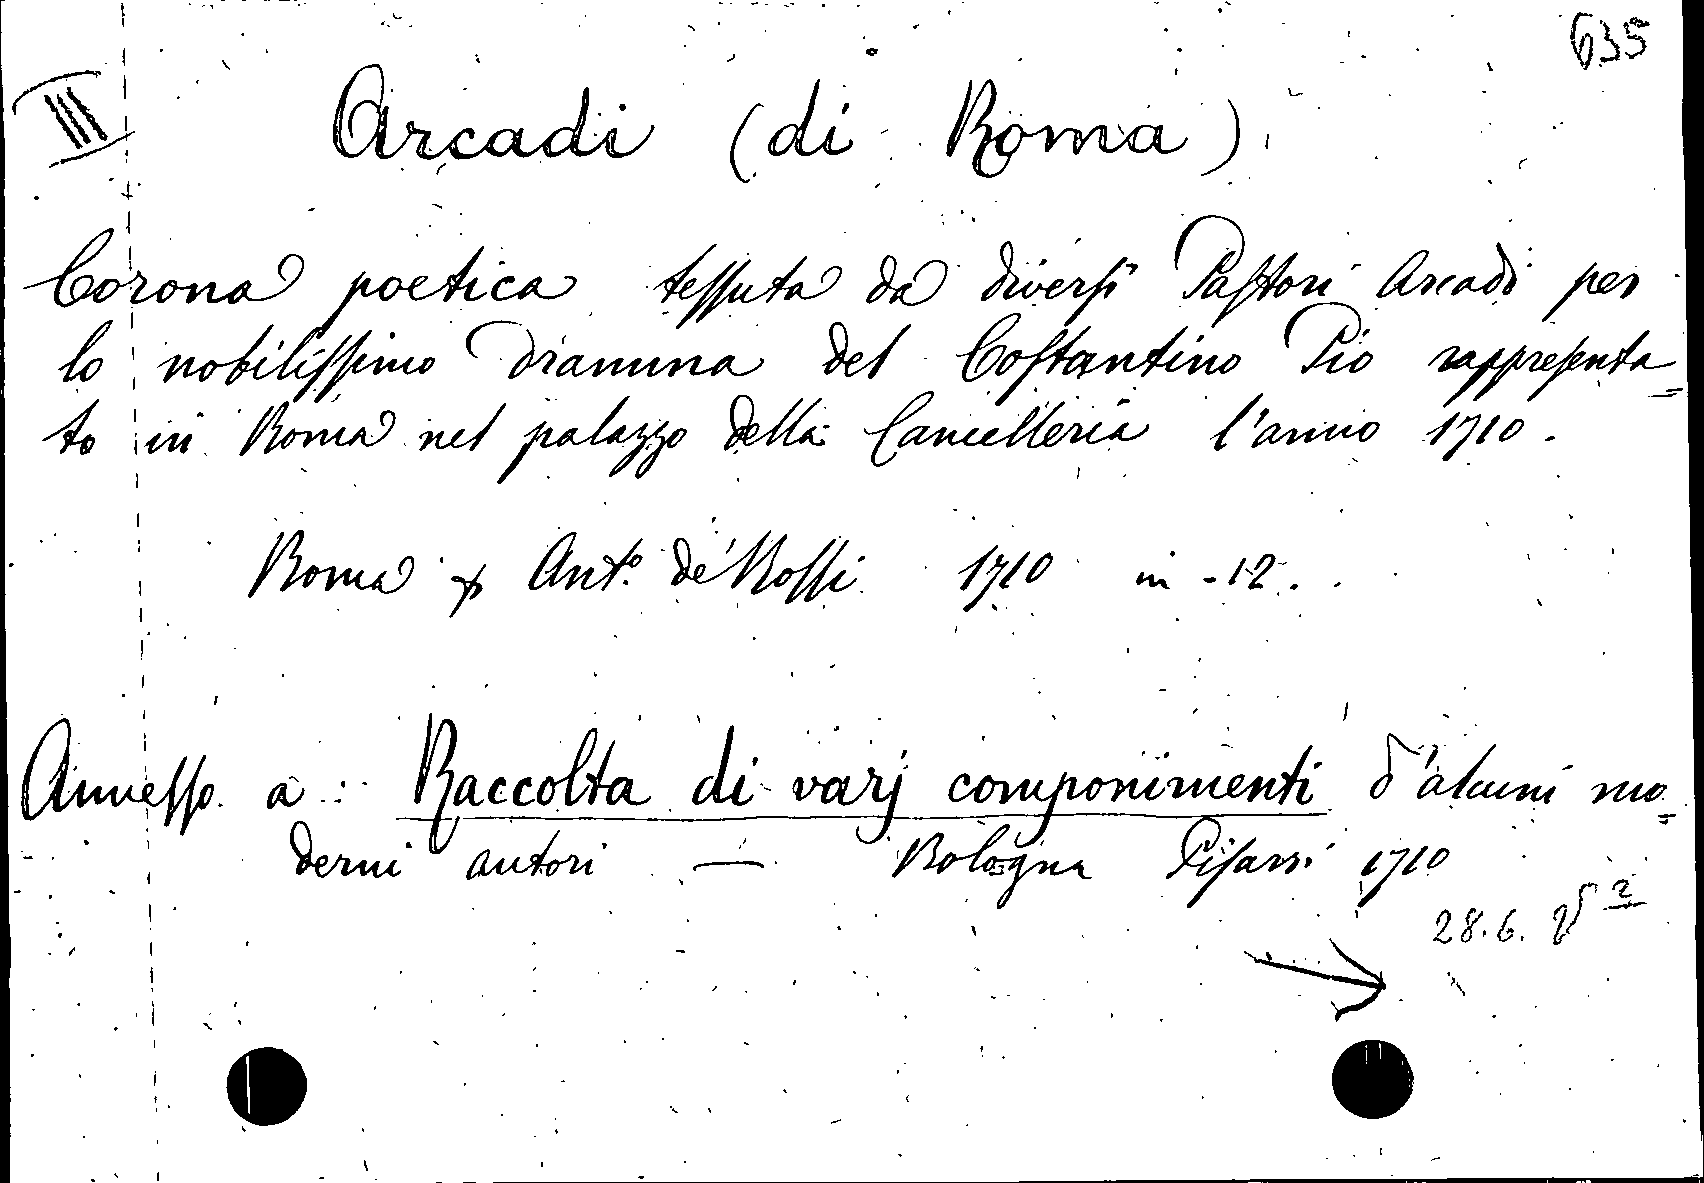 635
III
Arcadi (di Roma)
Corona poetica tessuta da diversi Pastori Arcadi per
lo nobilissimo dramma del Costantino Pio rappresenta=
to in Roma nel palazzo della Cancelleria l'anno 1710.
Roma p Ant.º de' Rossi 1710 in-12.
Annesso a: Raccolta di varj componimenti d'alcuni mo=
derni autori — Bologna Pisarri 1710
28.6.